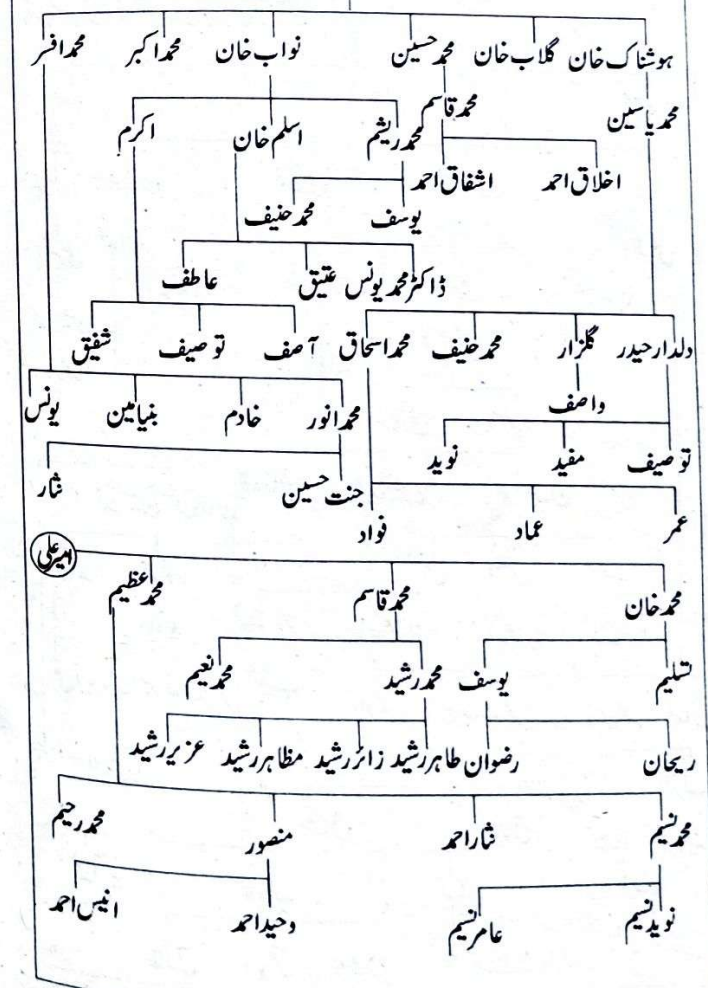 ہوشناک خان گلاب خان محمد حسین نواب خان محمد اکبر محمد افسر
محمد یاسین محمد قاسم محمد ریشم اسلم خان اکرم
اخلاق احمد اشفاق احمد یوسف محمد حنیف
ڈاکٹر محمد یونس عتیق عاطف
دلدار حیدر گلزار محمد حنیف محمد اسحاق آصف توصیف شفیق
واصف محمد انور خادم بنیامین یونس
توصیف مفید نوید جنت حسین نثار
عمر عماد فواد
امیر علی
محمد خان محمد قاسم محمد عظیم
تسلیم یوسف محمد رشید محمد نعیم
ریحان رضوان طاہر رشید زائر رشید مظاہر رشید عزیر رشید
محمد نسیم نثار احمد منصور محمد رحیم
نوید نسیم عامر نسیم وحید احمد انیس احمد